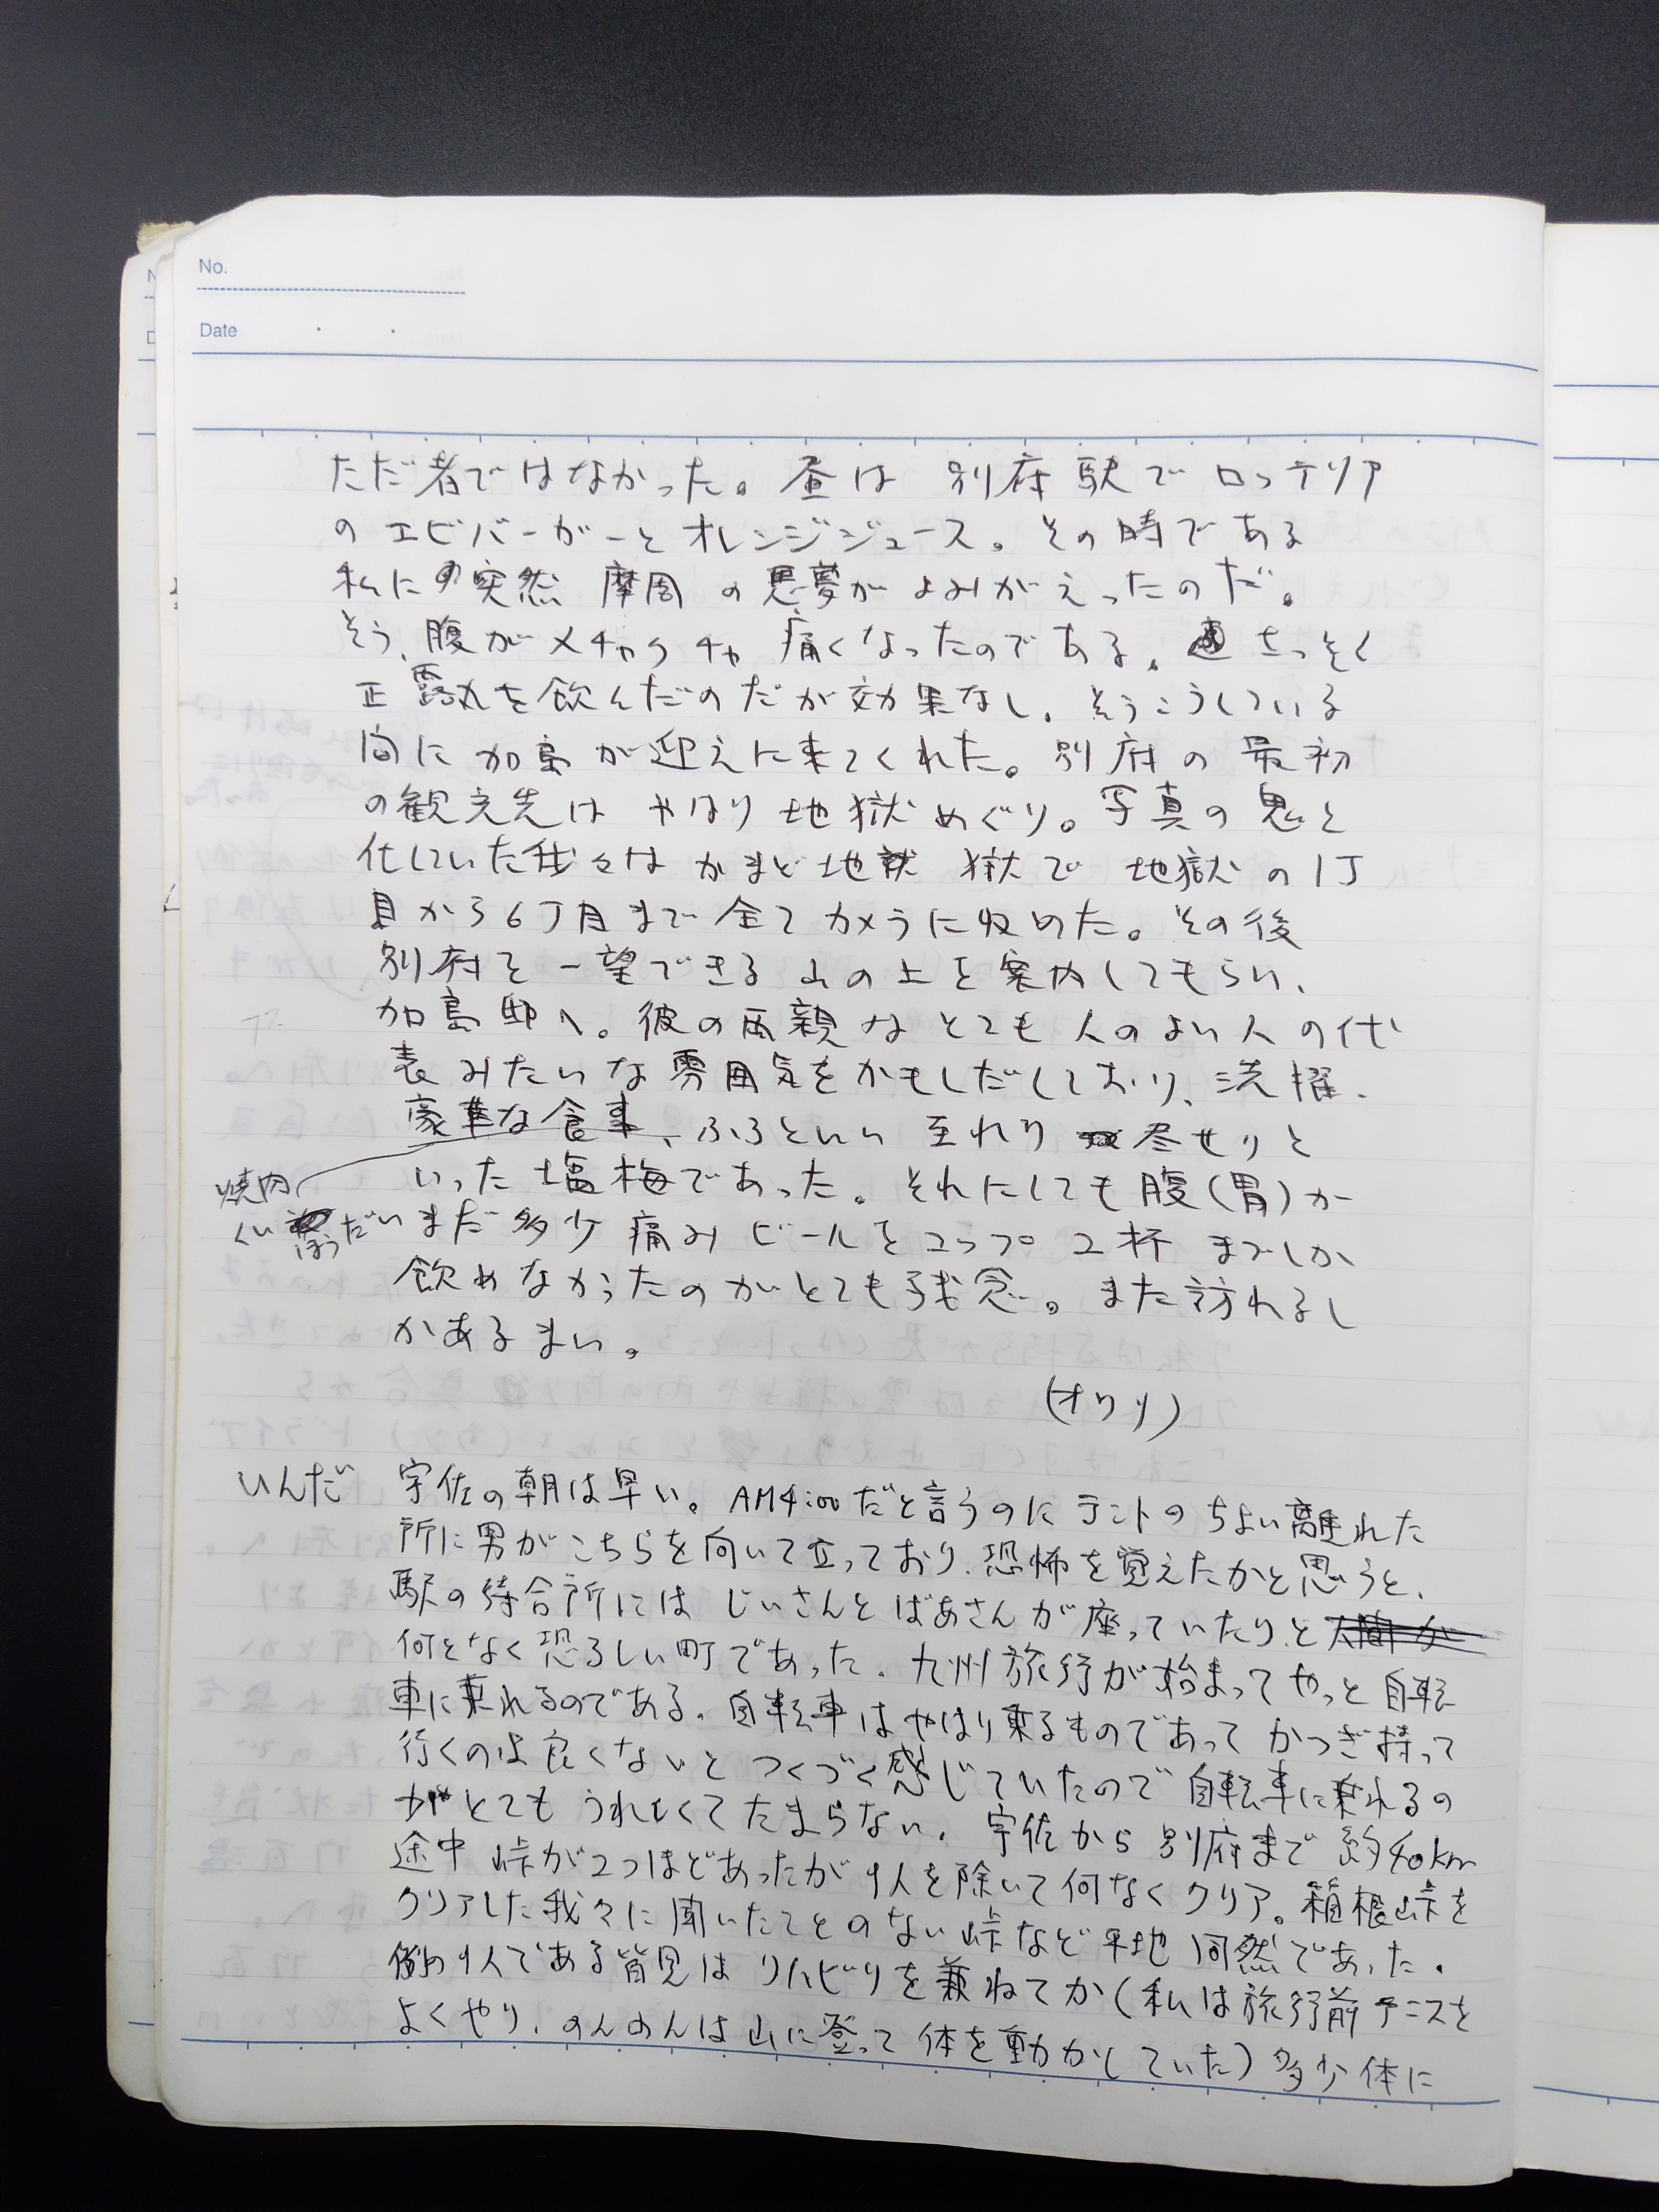 No.
Date
ただ者ではなかった。昼は 別府駅でロッテリア
のエビバーガーとオレンジジュース。その時である
私に突然 摩周の悪夢がよみがえったのだ。
そう、腹がメチャクチャ痛くなったのである。さっそく
正露丸を飲んだのだが効果なし。そうこうしている
間に加島が迎えに来てくれた。別府の最初
の観光先は やはり地獄めぐり。写真の鬼と
化していた我々は かまど地獄で 地獄の1丁
目から6丁目まで全てカメラに収めた。その後
別府を一望できる山の上を案内してもらい、
加島邸へ。彼の両親はとても人のよい人の代
表みたいな雰囲気をかもしだしており、洗濯、
豪華な食事、ふろといい 至れり尽せりと
いった塩梅であった。それにしても腹(胃)が
焼肉
くいほうだい
まだ多少痛みビールをコップ2杯までしか
飲めなかったのがとても残念。また訪れるし
かあるまい。
(オワリ)
いんだ 宇佐の朝は早い。AM4:00だと言うのにテントのちょい離れた
所に男がこちらを向いて立っており、恐怖を覚えたかと思うと、
駅の待合所には じいさんとばあさんが座っていたりと
何となく恐ろしい町であった。九州旅行が始まってやっと自転
車に乗れるのである。自転車はやはり乗るものであって かつぎ持って
行くのは良くないと つくづく感じていたので自転車に乗れるの
がとてもうれしくてたまらない。宇佐から別府まで 約40km
途中 峠が2つほどあったが1人を除いて何なくクリア。箱根峠を
クリアした我々に聞いたことのない峠など平地同然であった。
1人である皆見はリハビリを兼ねてか(私は旅行前テニスを
よくやり、のんのんは山に登って体を動かしていた)多少体に